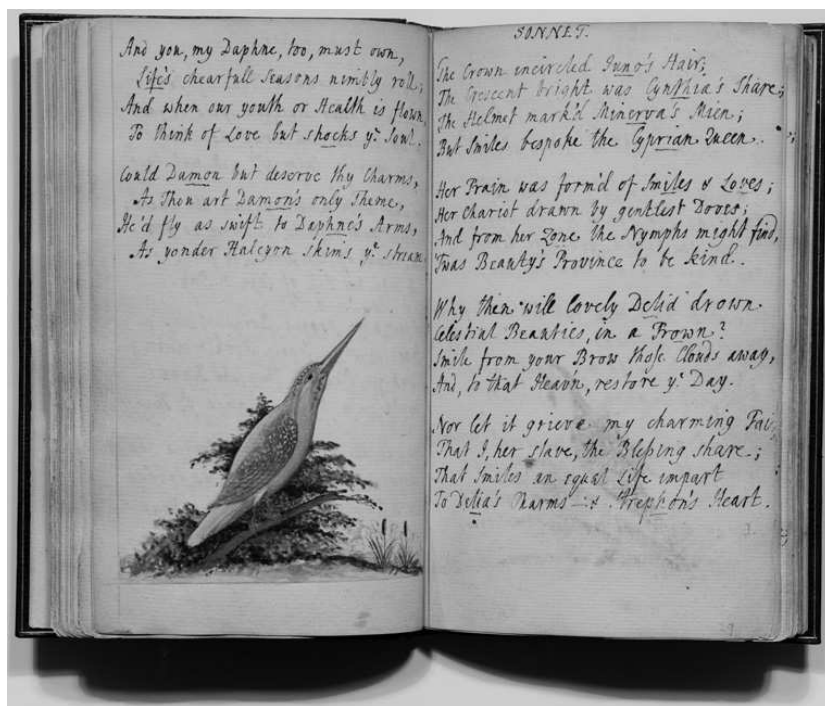 And you, my Daphne, too, must own,
Life's chearfull Seasons nimbly roll;
And when our youth or Health is flown,
To think of Love but shocks yᵉ Soul.
Could Damon but deserve thy Charms,
As Thou art Damon's only Theme,
He'd fly as swift to Daphne's Arms,
As yonder Halcyon skims yᵉ stream
SONNET.
The Crown incircled Juno's Hair;
The Crescent bright was Cynthia's Share;
The Helmet mark'd Minerva's Mien;
But Smiles bespoke the Cyprian Queen.
Her Train was form'd of Smiles & Loves;
Her Chariot drawn by gentlest Doves;
And from her Zone the Nymphs might find,
'Twas Beauty's Province to be kind.
Why then will lovely Delia drown
Celestial Beauties, in a Frown?
Smile from your Brow those Clouds away,
And, to that Heav'n, restore yᵉ Day.
Nor let it grieve my charming Fair,
That I, her slave, the Blessing share;
That Smiles an equal Life impart
To Delia's Charms — & Strephon's Heart.